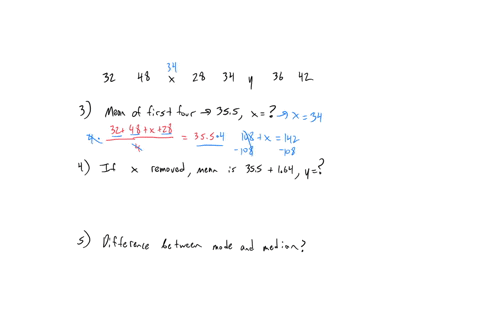 34
32 48 x 28 34 y 36 42
3) Mean of first four → 35.5, x = ? → x = 34
4 · (32 + 48 + x + 28) / 4 = 35.5 · 4 108 + x = 142
-108 -108
4) If x removed, mean is 35.5 + 1.64, y = ?
5) Difference between mode and median?